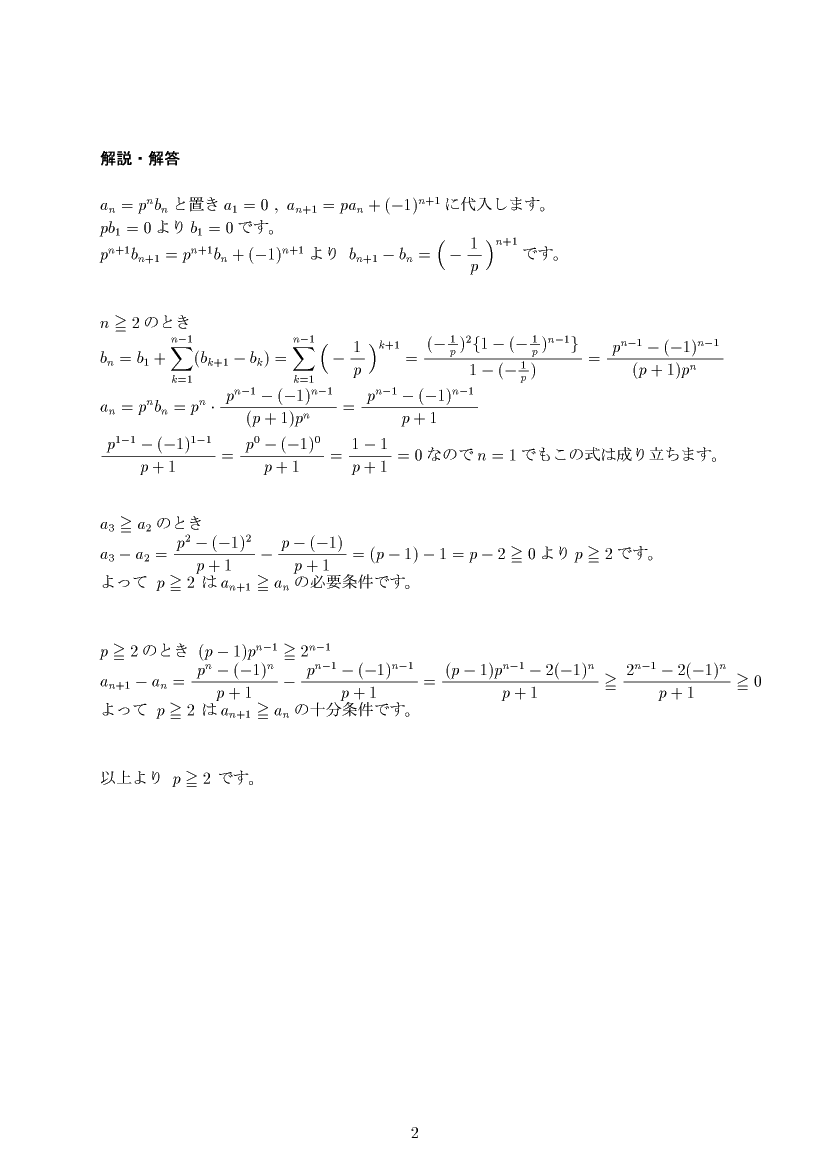 解説・解答
$a_n = p^n b_n$ と置き $a_1 = 0$ , $a_{n+1} = pa_n + (-1)^{n+1}$ に代入します。
$pb_1 = 0$ より $b_1 = 0$ です。
$p^{n+1}b_{n+1} = p^{n+1}b_n + (-1)^{n+1}$ より $b_{n+1} - b_n = \left(-\frac{1}{p}\right)^{n+1}$ です。
$n \geqq 2$ のとき
$b_n = b_1 + \sum_{k=1}^{n-1}(b_{k+1} - b_k) = \sum_{k=1}^{n-1}\left(-\frac{1}{p}\right)^{k+1} = \frac{(-\frac{1}{p})^2\{1 - (-\frac{1}{p})^{n-1}\}}{1 - (-\frac{1}{p})} = \frac{p^{n-1} - (-1)^{n-1}}{(p+1)p^n}$
$a_n = p^n b_n = p^n \cdot \frac{p^{n-1} - (-1)^{n-1}}{(p+1)p^n} = \frac{p^{n-1} - (-1)^{n-1}}{p+1}$
$\frac{p^{1-1} - (-1)^{1-1}}{p+1} = \frac{p^0 - (-1)^0}{p+1} = \frac{1-1}{p+1} = 0$ なので $n = 1$ でもこの式は成り立ちます。
$a_3 \geqq a_2$ のとき
$a_3 - a_2 = \frac{p^2 - (-1)^2}{p+1} - \frac{p - (-1)}{p+1} = (p-1) - 1 = p - 2 \geqq 0$ より $p \geqq 2$ です。
よって $p \geqq 2$ は $a_{n+1} \geqq a_n$ の必要条件です。
$p \geqq 2$ のとき $(p-1)p^{n-1} \geqq 2^{n-1}$
$a_{n+1} - a_n = \frac{p^n - (-1)^n}{p+1} - \frac{p^{n-1} - (-1)^{n-1}}{p+1} = \frac{(p-1)p^{n-1} - 2(-1)^n}{p+1} \geqq \frac{2^{n-1} - 2(-1)^n}{p+1} \geqq 0$
よって $p \geqq 2$ は $a_{n+1} \geqq a_n$ の十分条件です。
以上より $p \geqq 2$ です。
2